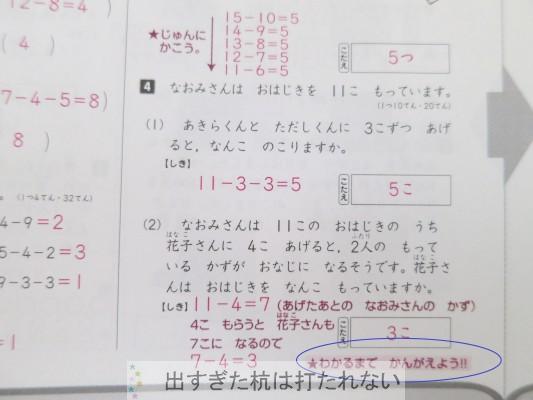 12-8=4)
(4)
7-4-5=8)
8)
(1つ4てん・32てん)
4-9=2
5-4-2=3
9-3-3=1
=1
★じゅんに
かこう。
15-10=5
14-9=5
13-8=5
12-7=5
11-6=5
こたえ 5つ
4 なおみさんは おはじきを 11こ もっています。
(1つ10てん・20てん)
(1) あきらくんと ただしくんに 3こずつ あげ
ると,なんこ のこりますか。
【しき】
11-3-3=5
こたえ 5こ
(2) なおみさんは 11この おはじきの うち
花子さんに 4こ あげると,2人の もって
はなこ ふたり
いる かずが おなじに なるそうです。花子さ
はなこ
んは おはじきを なんこ もっていますか。
【しき】11-4=7(あげたあとの なおみさんの かず)
4こ もらうと 花子さんも
はなこ
7こに なるので
7-4=3
こたえ 3こ
★わかるまで かんがえよう!!
出すぎた杭は打たれない